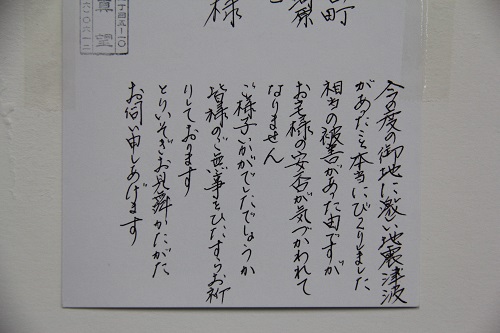 町
様
今度の御地に激い地震津波
があったこと本当にびっくりしました
相当の被害があった由ですが
お宅様の安否が気づかわれて
なりません
ご様子いかがでしたでしょうか
皆様のご無事をひたすらお祈
りしております
とりいそぎお見舞かたがた
お伺い申しあげます